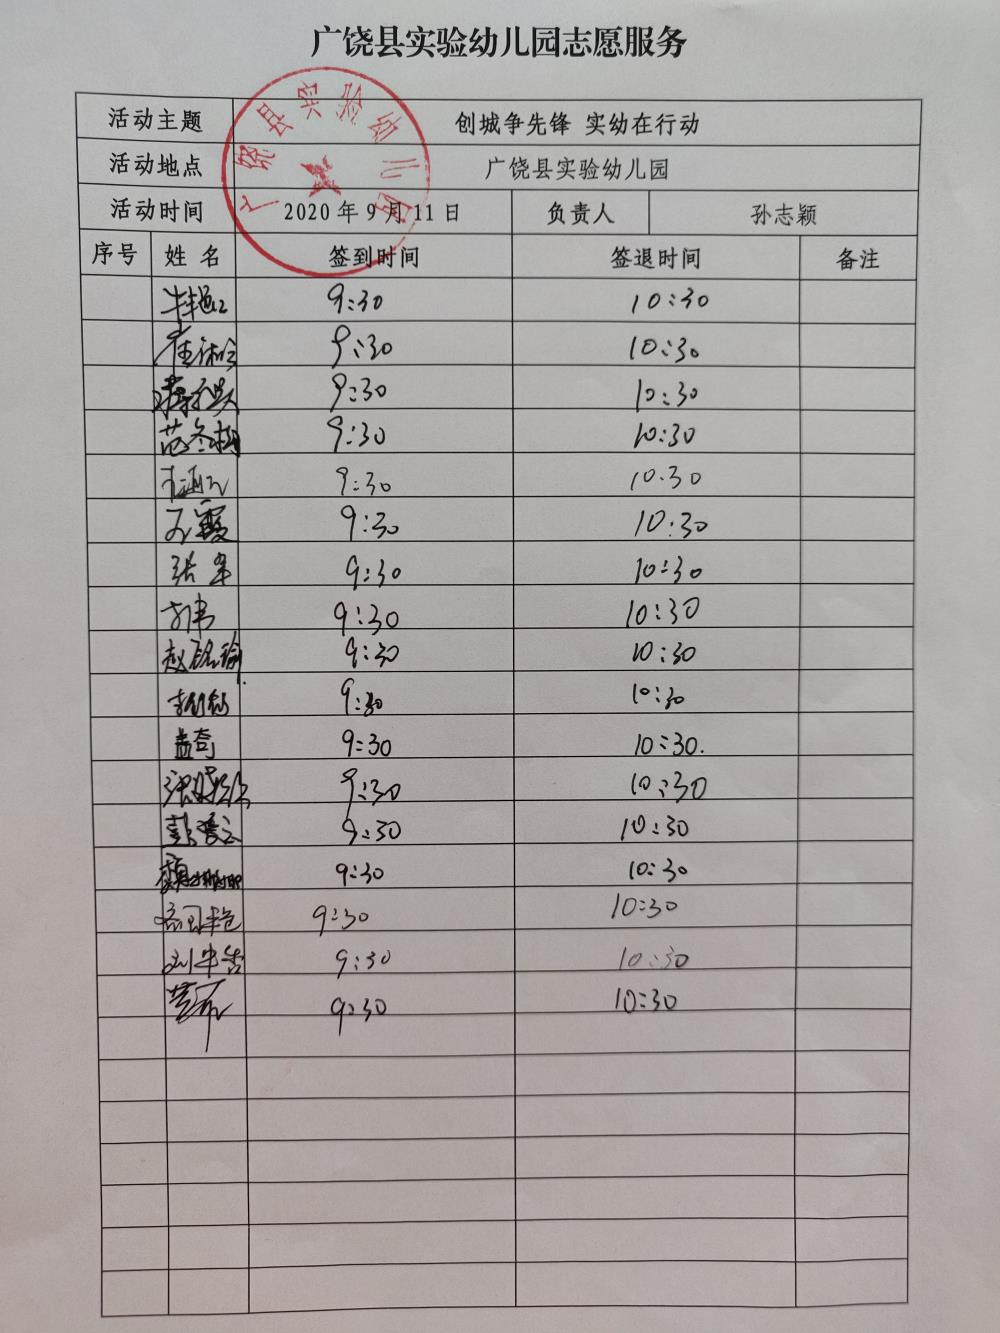 广饶县实验幼儿园志愿服务
广饶县实验幼儿园
活动主题 创城争先锋 实幼在行动
活动地点 广饶县实验幼儿园
活动时间 2020年9月11日 负责人 孙志颖
序号 姓名 签到时间 签退时间 备注
9:30 10:30
9:30 10:30
9:30 10:30
范冬梅 9:30 10:30
9:30 10.30
9:30 10:30
张军 9:30 10:30
9:30 10:30
赵铭瑜 9:30 10:30
9:30 10:30
盖奇 9:30 10:30.
9:30 10:30
9:30 10:30
9:30 10:30
9:30 10:30
9:30 10:30
9:30 10:30